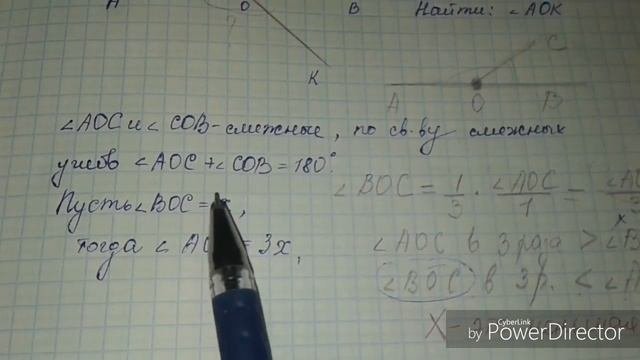 A O B Найти: ∠AOK
?
K
C
A O B
∠AOC и ∠COB - смежные, по св-ву смежных
углов ∠AOC + ∠COB = 180°.
Пусть ∠BOC = ,
тогда ∠ AO = 3x,
∠BOC = 1/3 · ∠AOC/1 =
∠AOC в 3 раза >
x
∠BOC в 3 р. <
X -
CyberLink
by PowerDirector